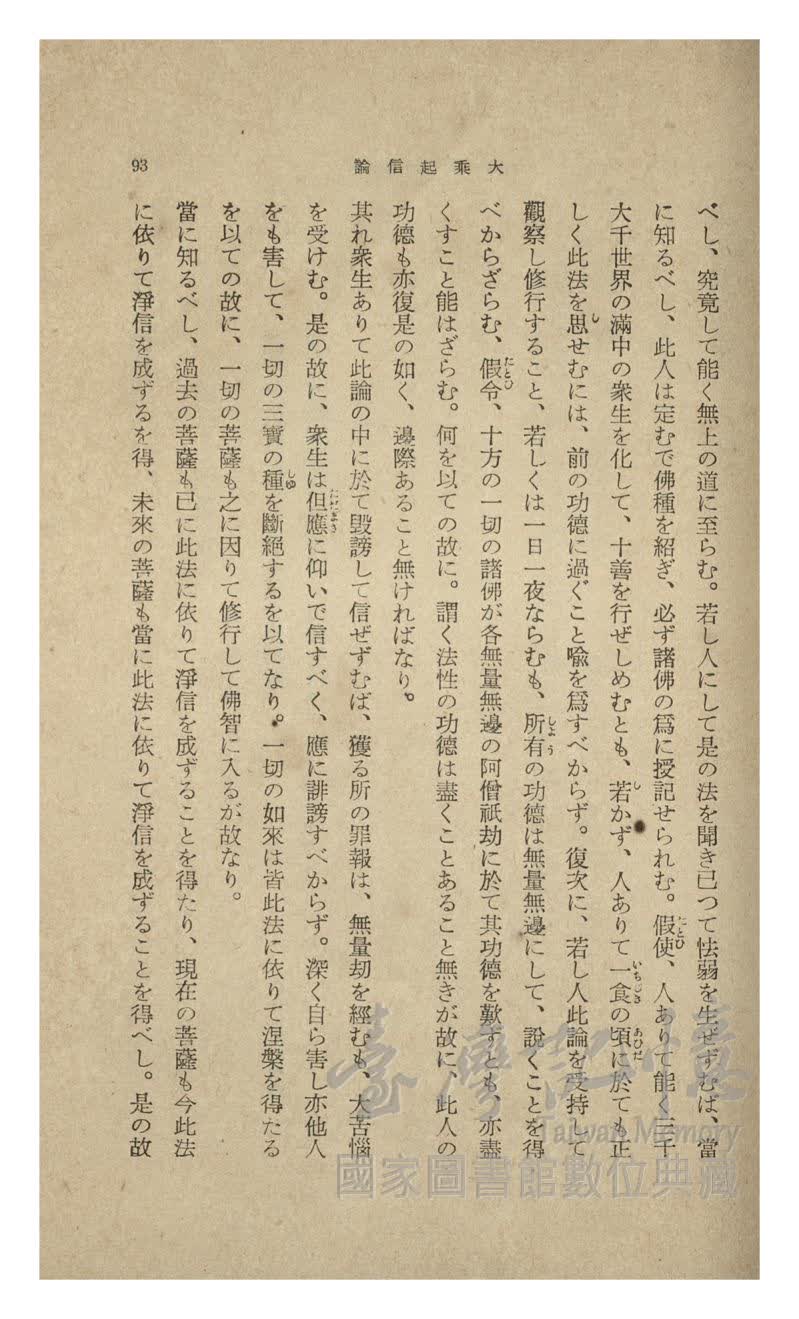 大乘起信論
93
べし、究竟して能く無上の道に至らむ。若し人にして是の法を聞き已つて怯弱を生ぜずむば、當
に知るべし、此人は定むで佛種を紹ぎ、必ず諸佛の爲に授記せられむ。假使、人ありて能く三千
大千世界の滿中の衆生を化して、十善を行ぜしめむとも、若かず、人ありて一食の頃に於ても正
しく此法を思せむには、前の功德に過ぐこと喩を爲すべからず。復次に、若し人此論を受持して
觀察し修行すること、若しくは一日一夜ならむも、所有の功德は無量無邊にして、說くことを得
べからざらむ、假令、十方の一切の諸佛が各無量無邊の阿僧祇劫に於て其功德を歎ずとも、亦盡
くすこと能はざらむ。何を以ての故に。謂く法性の功德は盡くことあること無きが故に、此人の
功德も亦復是の如く、邊際あること無ければなり。
其れ衆生ありて此論の中に於て毀謗して信ぜずむば、獲る所の罪報は、無量劫を經むも、大苦惱
を受けむ。是の故に、衆生は但應に仰いで信すべく、應に誹謗すべからず。深く自ら害し亦他人
をも害して、一切の三寶の種を斷絕するを以てなり。一切の如來は皆此法に依りて涅槃を得たる
を以ての故に、一切の菩薩も之に因りて修行して佛智に入るが故なり。
當に知るべし、過去の菩薩も已に此法に依りて淨信を成ずることを得たり、現在の菩薩も今此法
に依りて淨信を成ずるを得、未來の菩薩も當に此法に依りて淨信を成ずることを得べし。是の故
臺灣記憶
Taiwan Memory
國家圖書館數位典藏